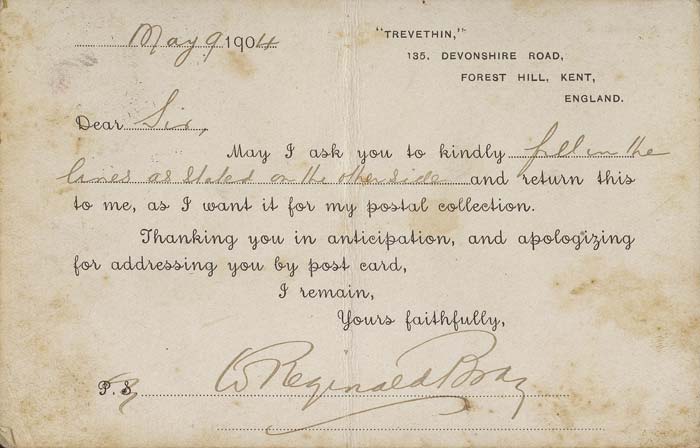 May 9 1904
"TREVETHIN,"
135. DEVONSHIRE ROAD,
FOREST HILL, KENT,
ENGLAND.
Dear Sir,
May I ask you to kindly fill in the
lines as stated on the other side and return this
to me, as I want it for my postal collection.
Thanking you in anticipation, and apologizing
for addressing you by post card,
I remain,
Yours faithfully,
W Reginald Bray
P. S.